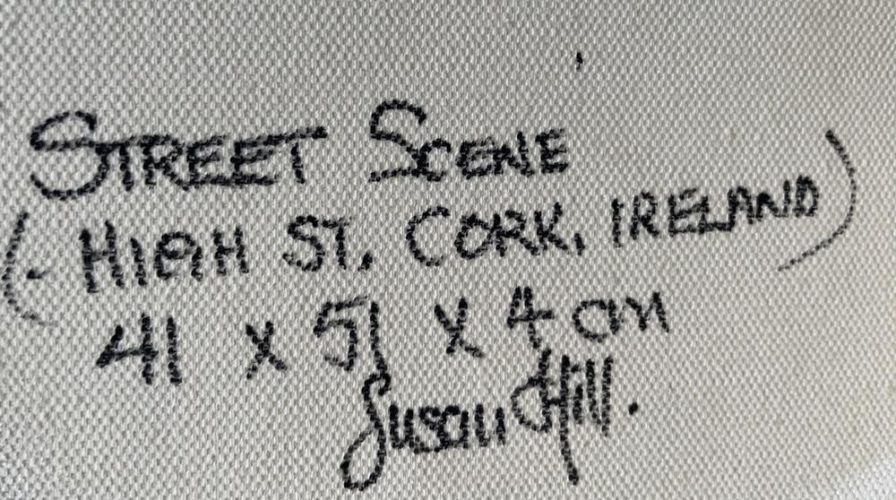 STREET SCENE
(. HIGH ST, CORK, IRELAND)
41 x 51 x 4 cm
Susan Hill.